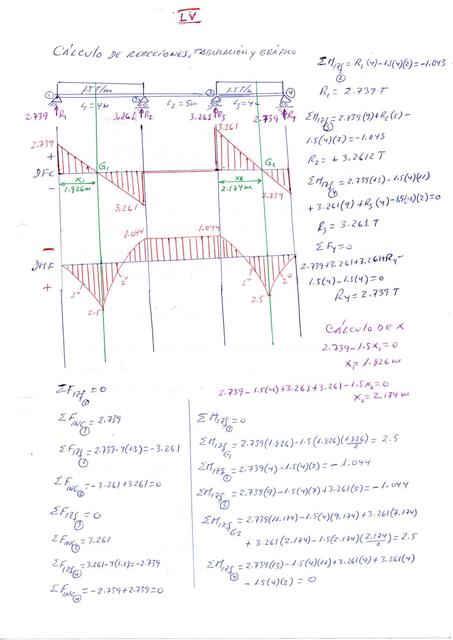 LV
CÁLCULO DE REACCIONES, TABULACIÓN Y GRÁFICO
1.5 T/m
1.5 T/m
1
2
3
4
2.739 R1
L1=4m
3.261 R2
L2=5m
3.261 R3
L3=4m
2.739 R4
2.739
+
DFC
-
X1
1.826m
G1
3.261
3.261
X2
2.174m
G2
2.739
-
DMF
+
1.044
1.044
2°
2°
2.5
2°
2°
2.5
ΣM12f2=R1(4)-1.5(4)(2)=-1.043
R1= 2.739 T
ΣM12f3=2.739(9)+R2(5)-
1.5(4)(7)=-1.043
R2= +3.2612 T
ΣM12f4=2.739(13)-1.5(4)(11)
+3.261(9)+R3(4)-1.5(4)(2)=0
R3= 3.261 T
ΣFy=0
2.739+3.261+3.261+Ry-
1.5(4)-1.5(4)=0
Ry=2.739 T
CÁLCULO DE X
2.739-1.5X1=0
X1=1.826 m
2.739-1.5(4)+3.261+3.261-1.5X2=0
X2=2.174m
ΣF12f=0
ΣFINC1=2.739
ΣF12f=2.739-4(1.5)=-3.261
ΣFINC=-3.261+3.261=0
ΣF12f3=0
ΣFINC3=3.261
ΣF12f4=3.261-4(1.5)=-2.739
ΣFINC4=-2.739+2.739=0
ΣM12f1=0
ΣM12fG1=2.739(1.826)-1.5(1.826)(1.826/2)=2.5
ΣM12f2=2.739(4)-1.5(4)(2)=-1.044
ΣM12f3=2.739(9)-1.5(4)(7)+3.261(5)=-1.044
ΣM12fG2=2.739(11.174)-1.5(4)(9.174)+3.261(7.174)
+3.261(2.174)-1.5(2.174)(2.174/2)=2.5
ΣM12f4=2.739(13)-1.5(4)(11)+3.261(9)+3.261(4)
-1.5(4)(2)=0